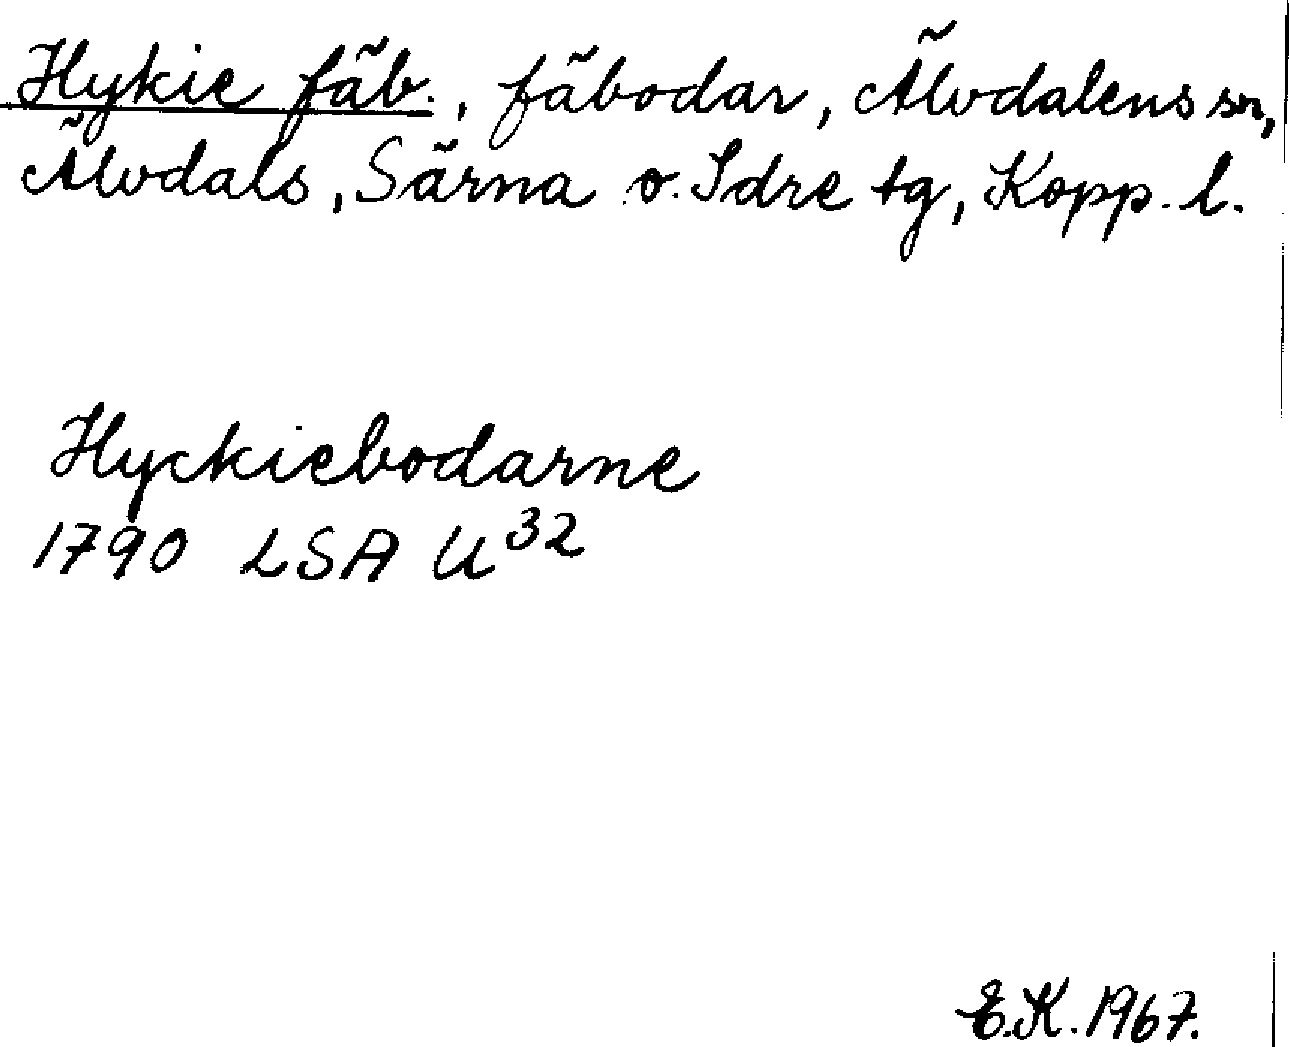 Hykie fäb., fäbodar, Älvdalens sn,
Älvdals, Särna o. Idre tg, Kopp. l.
Hyckiebodarne
1790 LSA U32
E.K. 1967.